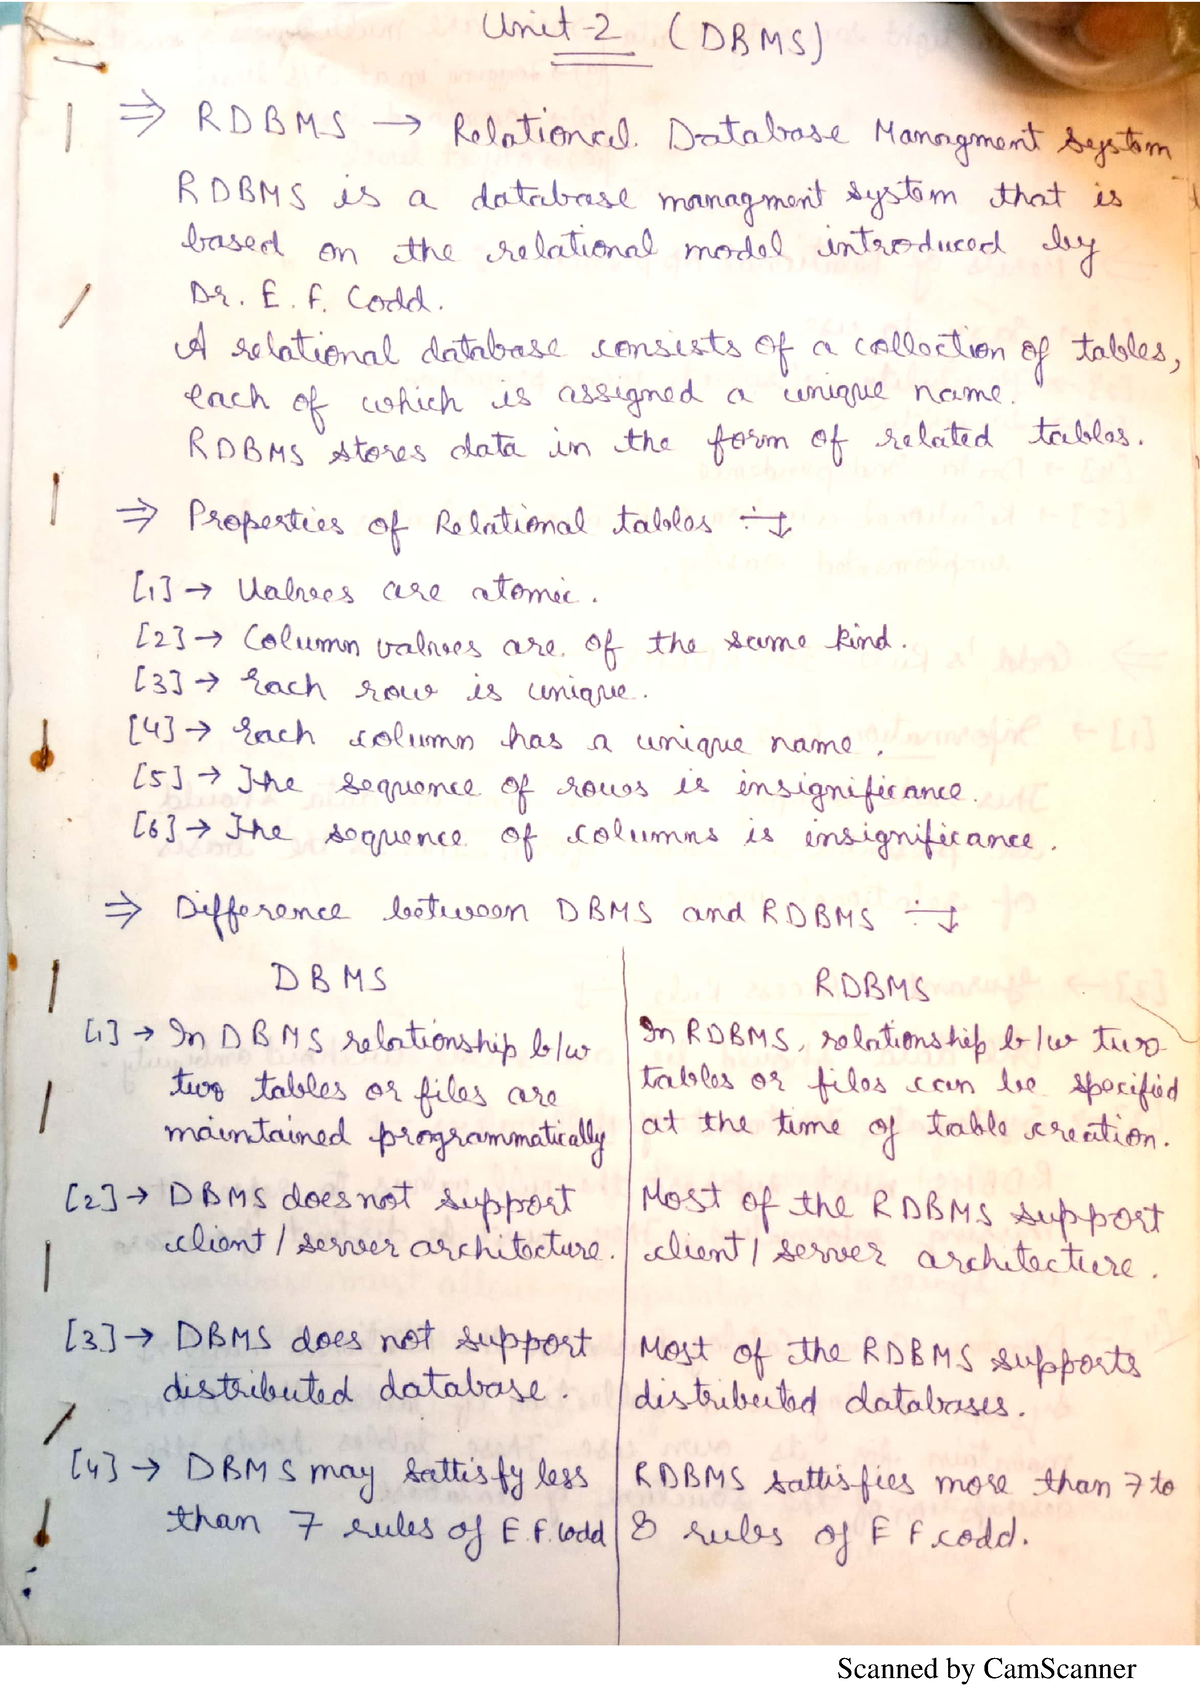 Unit-2 (DBMS)
⇒ RDBMS → Relational Database Managment System
RDBMS is a database managment system that is
based on the relational model introduced by
Dr. E. F. Codd.
A relational database consists of a collection of tables,
each of which is assigned a unique name.
RDBMS stores data in the form of related tables.
⇒ Properties of Relational tables ÷↓
[1] → Values are atomic.
[2] → Column values are of the same kind.
[3] → Each row is unique.
[4] → Each column has a unique name.
[5] → The sequence of rows is insignificance.
[6] → The sequence of columns is insignificance.
⇒ Difference between DBMS and RDBMS ÷↓
DBMS
[1] → In DBMS relationship b/w
two tables or files are
maintained programmatically
[2] → DBMS does not support
client / server architecture.
[3] → DBMS does not support
distributed database.
[4] → DBMS may sattisfy less
than 7 rules of E.F. Codd
RDBMS
In RDBMS, relationship b/w two
tables or files can be specified
at the time of table creation.
Most of the RDBMS support
client / server architecture.
Most of the RDBMS supports
distributed databases.
RDBMS sattisfies more than 7 to
8 rules of E F. codd.
Scanned by CamScanner